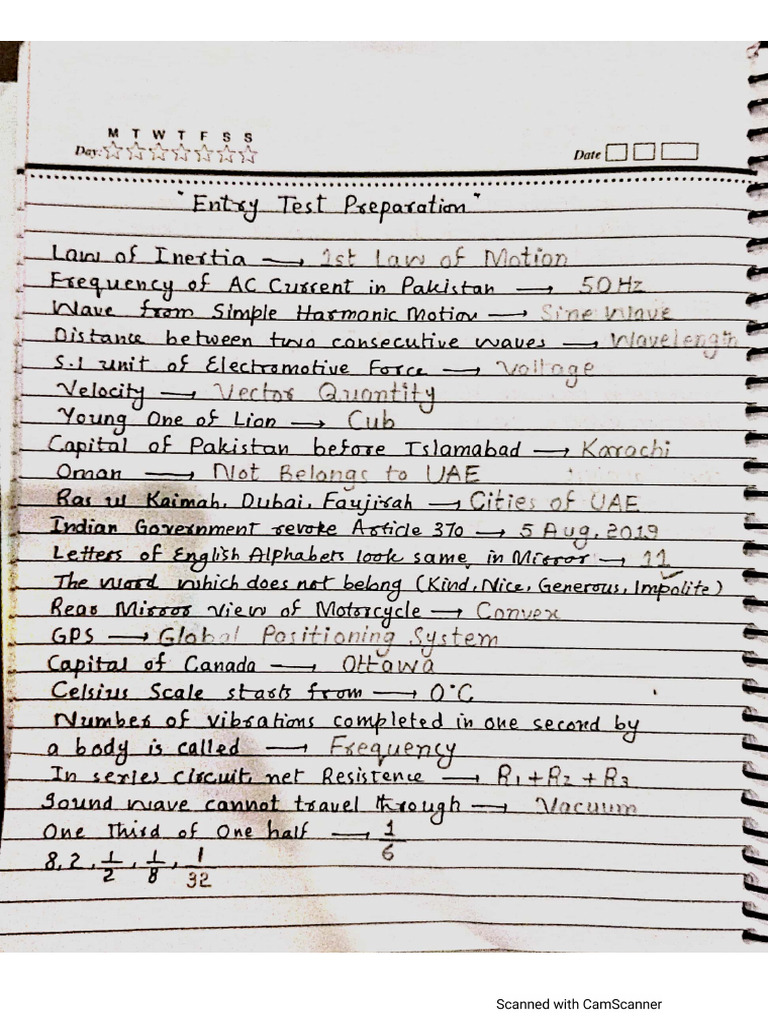 M T W T F S S
Day:
Date
"Entry Test Preparation"
Law of Inertia → 1st Law of Motion
Frequency of AC Current in Pakistan → 50 Hz
Wave from Simple Harmonic Motion → Sine Wave
Distance between two consecutive waves → Wavelength
S.I unit of Electromotive Force → Voltage
Velocity → Vector Quantity
Young One of Lion → Cub
Capital of Pakistan before Islamabad → Karachi
Oman → Not Belongs to UAE
Ras ul Kaimah, Dubai, Faujirah → Cities of UAE
Indian Government revoke Article 370 → 5 Aug, 2019
Letters of English Alphabets look same in Mirror → 11
The word which does not belong (Kind, Nice, Generous, Impolite)
Rear Mirror view of Motorcycle → Convex
GPS → Global Positioning System
Capital of Canada → Ottawa
Celsius Scale starts from → 0°C
Number of vibrations completed in one second by
a body is called → Frequency
In series circuit net Resistence → R1 + R2 + R3
Sound wave cannot travel through → Vacuum
One Third of One half → 1/6
8, 2, 1/2, 1/8, 1/32
Scanned with CamScanner